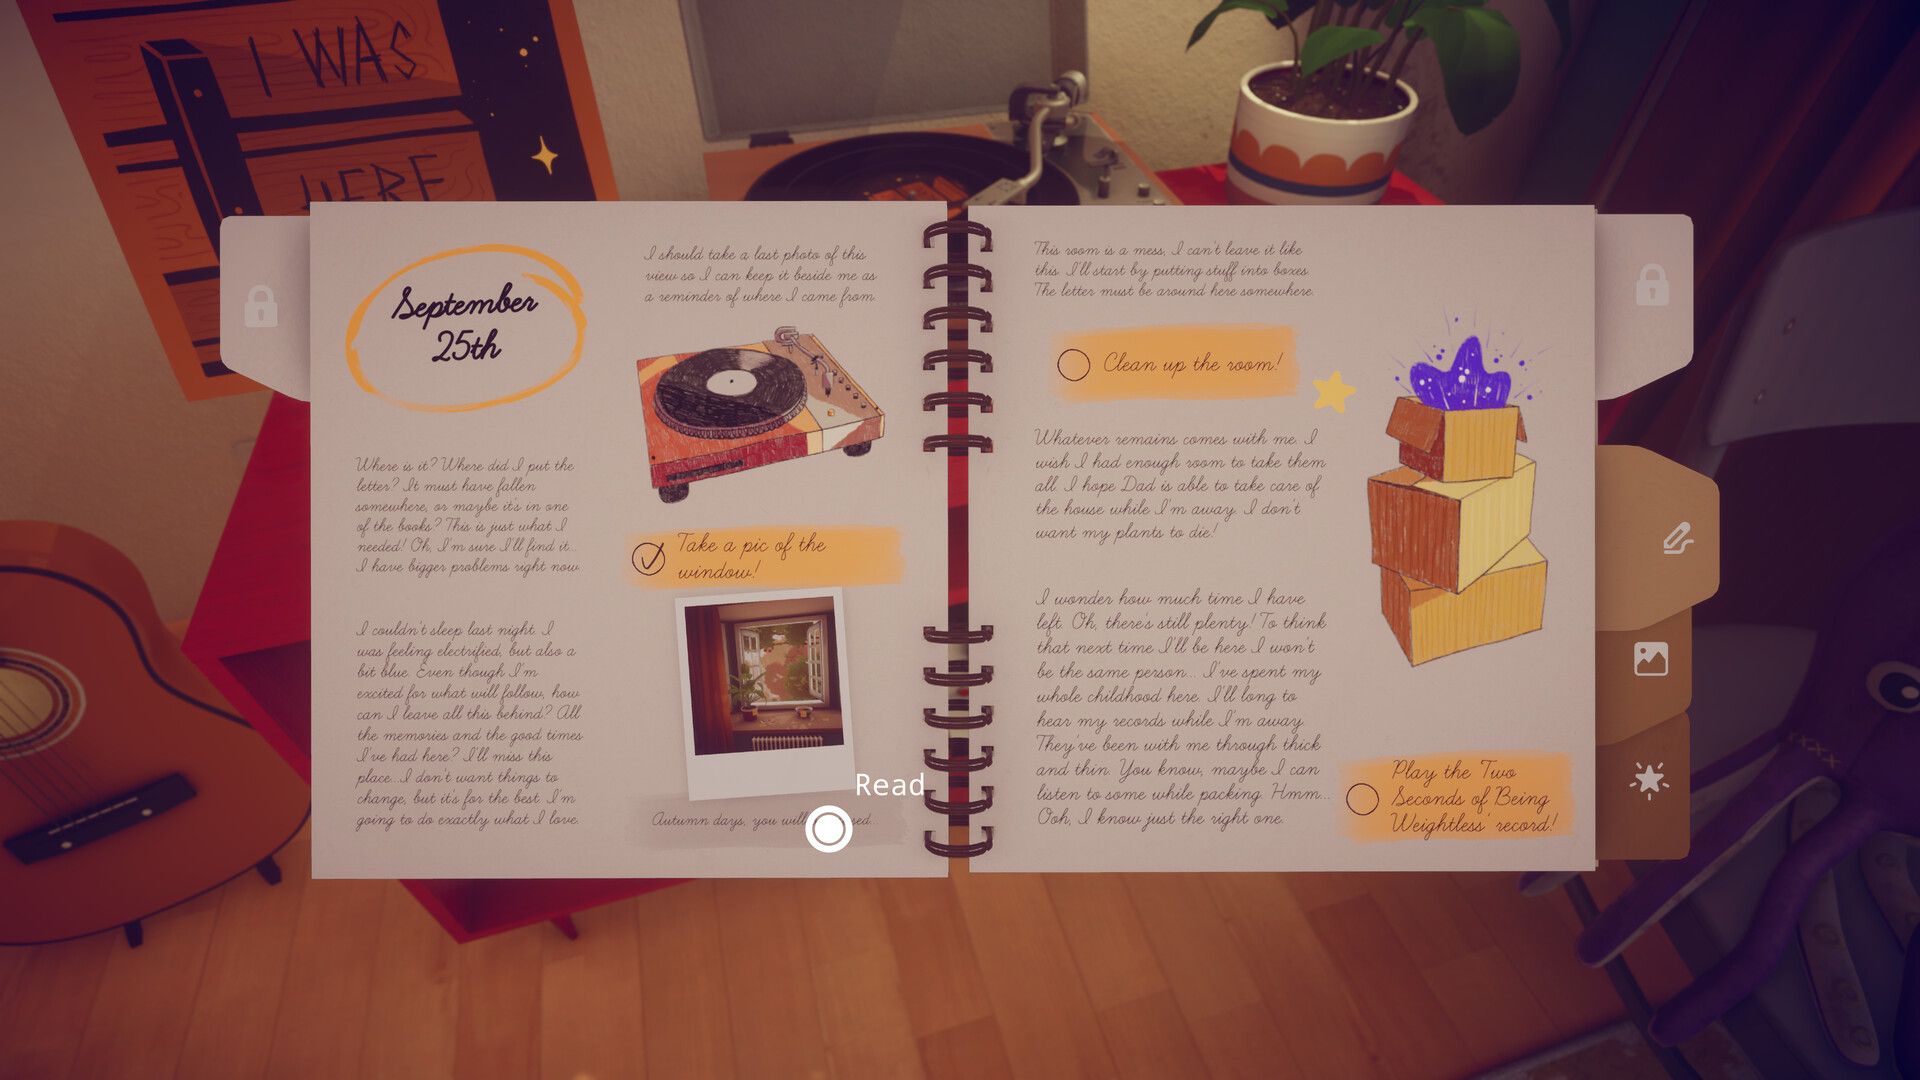 I WAS
HERE
September
25th
Where is it? Where did I put the
letter? It must have fallen
somewhere, or maybe it's in one
of the books? This is just what I
needed! Oh, I'm sure I'll find it...
I have bigger problems right now.
I couldn't sleep last night. I
was feeling electrified, but also a
bit blue. Even though I'm
excited for what will follow, how
can I leave all this behind? All
the memories and the good times
I've had here? I'll miss this
place...I don't want things to
change, but it's for the best. I'm
going to do exactly what I love.
I should take a last photo of this
view so I can keep it beside me as
a reminder of where I came from.
Take a pic of the
window!
Read
Autumn days, you will
This room is a mess, I can't leave it like
this. I'll start by putting stuff into boxes.
The letter must be around here somewhere.
Clean up the room!
Whatever remains comes with me. I
wish I had enough room to take them
all. I hope Dad is able to take care of
the house while I'm away. I don't
want my plants to die!
I wonder how much time I have
left. Oh, there's still plenty! To think
that next time I'll be here I won't
be the same person... I've spent my
whole childhood here. I'll long to
hear my records while I'm away.
They've been with me through thick
and thin. You know, maybe I can
listen to some while packing. Hmm...
Ooh, I know just the right one.
Play the Two
Seconds of Being
Weightless' record!